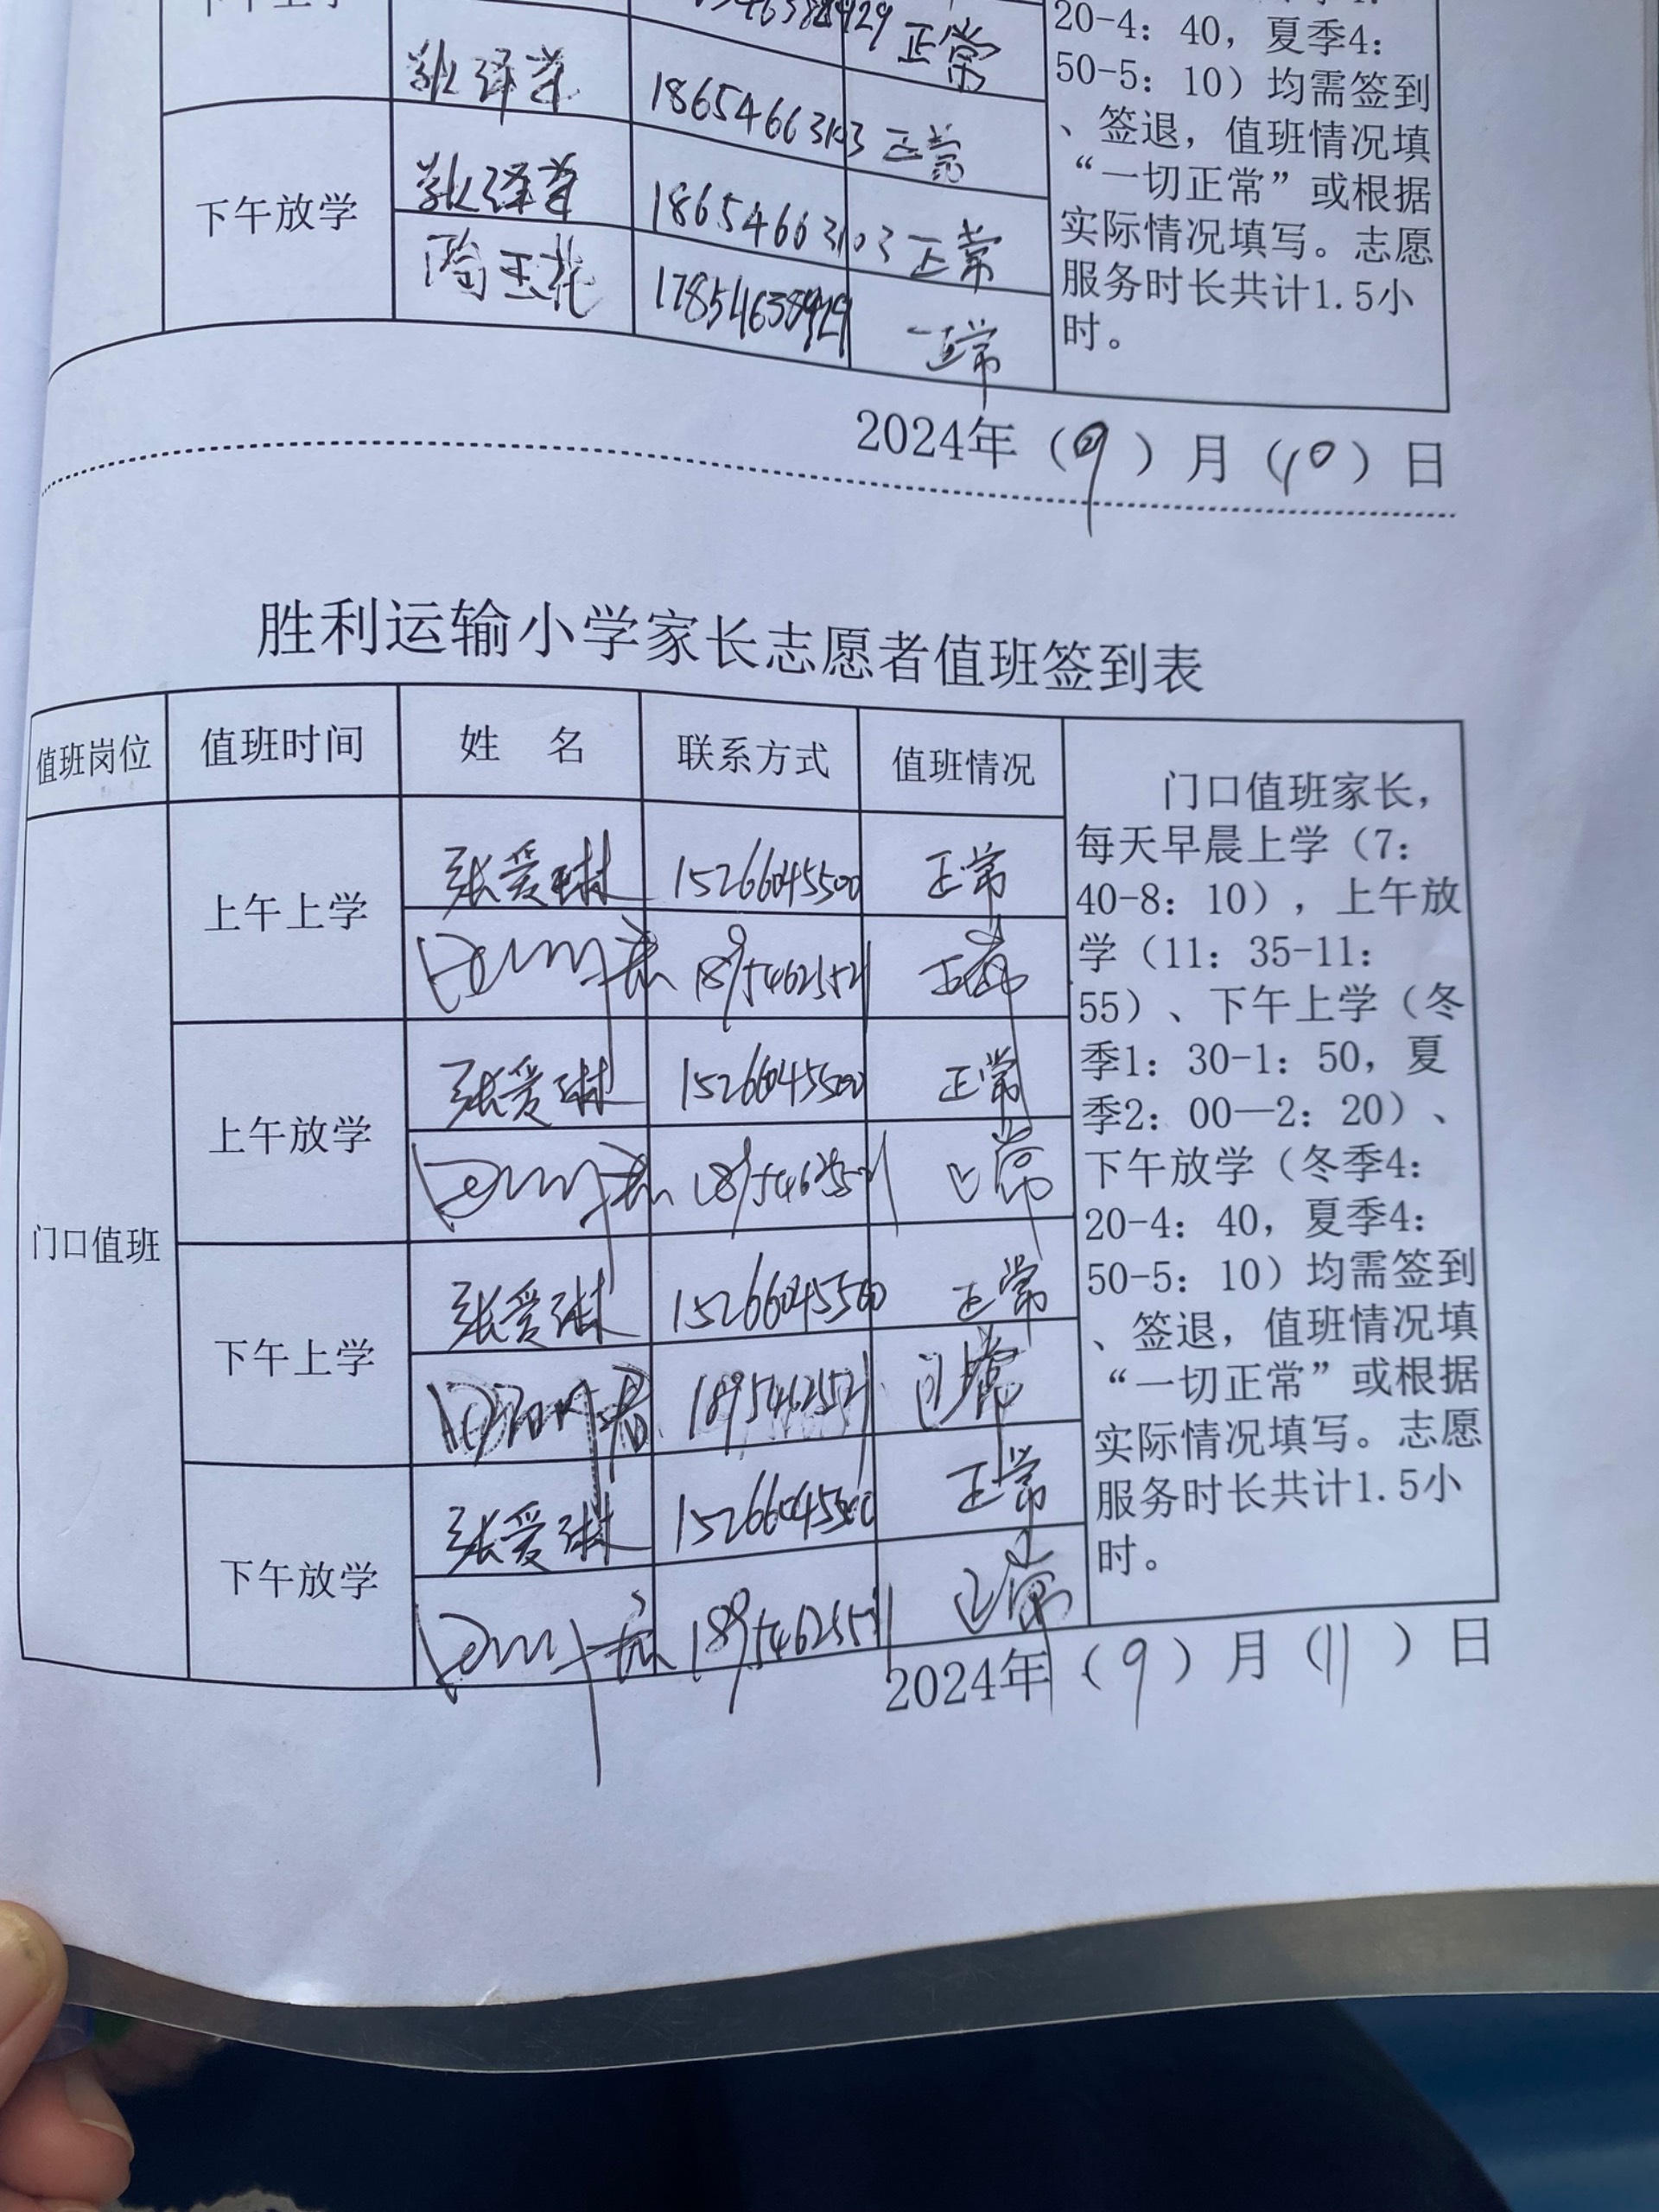 正常
20-4：40，夏季4：
18654663103 正常
50-5：10）均需签到
、签退，值班情况填
“一切正常”或根据
下午放学
18654663103 正常
实际情况填写。志愿
17854638929 正常
服务时长共计1.5小
时。
2024年（9）月（10）日
胜利运输小学家长志愿者值班签到表
值班岗位 值班时间 姓 名 联系方式 值班情况
门口值班
上午上学 张爱琳 15266045500 正常
18954625521 正常
上午放学 张爱琳 15266045500 正常
正常
下午上学 张爱琳 15266045500 正常
正常
下午放学 张爱琳 15266045500 正常
正常
门口值班家长，
每天早晨上学（7：
40-8：10），上午放
学（11：35-11：
55）、下午上学（冬
季1：30-1：50，夏
季2：00—2：20）、
下午放学（冬季4：
20-4：40，夏季4：
50-5：10）均需签到
、签退，值班情况填
“一切正常”或根据
实际情况填写。志愿
服务时长共计1.5小
时。
2024年（9）月（11）日